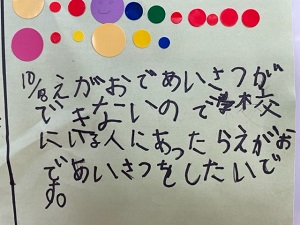 10/8 えがおであいさつが
できないので学校
にいる人にあったらえがお
であいさつをしたいで
す。